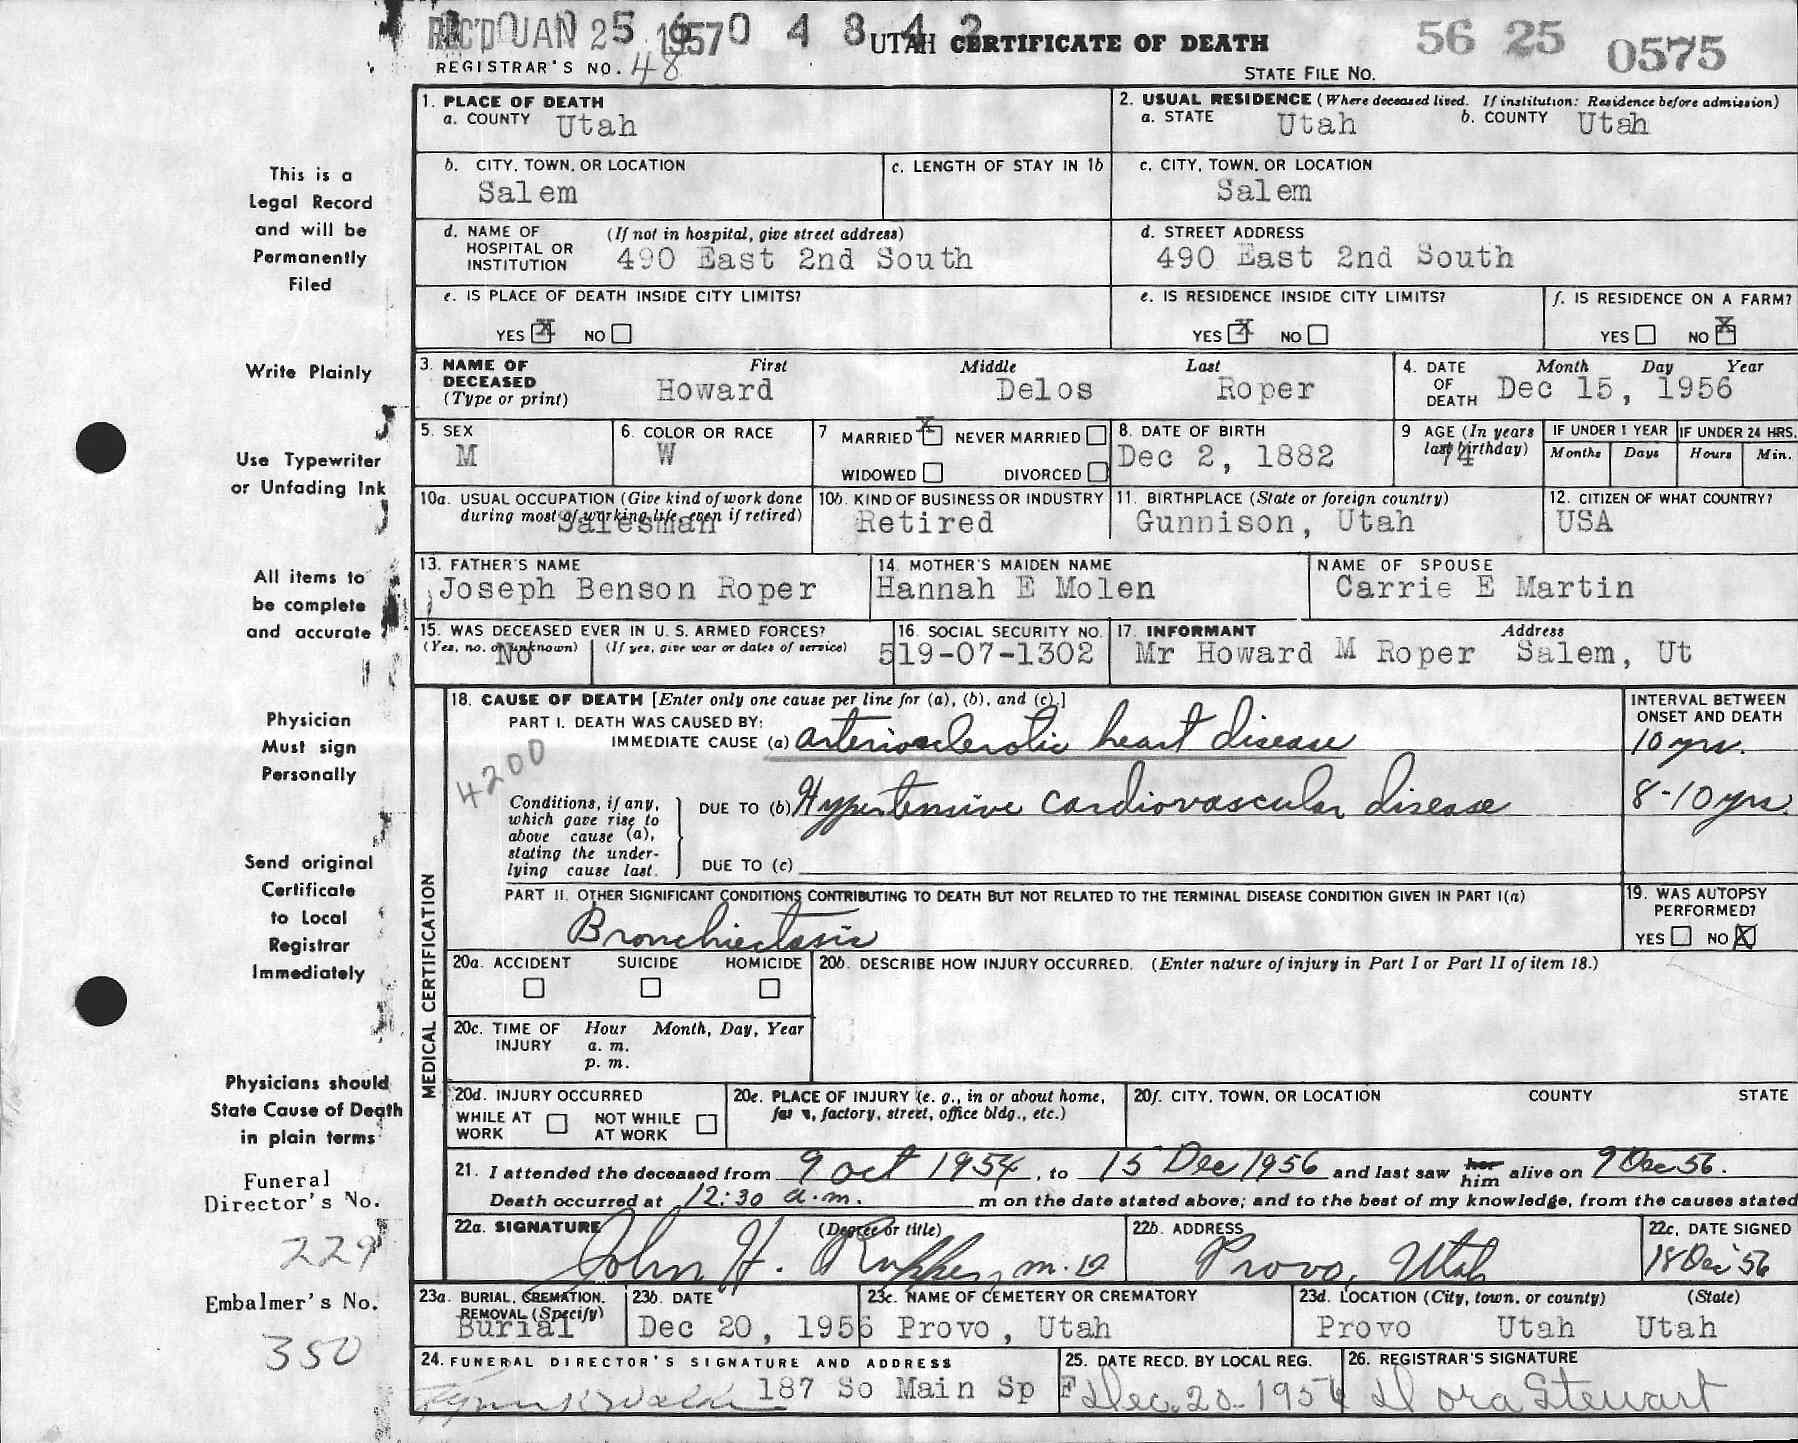 REC'D JAN 25 1957 0 4 8 4 2 UTAH CERTIFICATE OF DEATH 56 25 0575
REGISTRAR'S NO. 48
STATE FILE NO.
1. PLACE OF DEATH
a. COUNTY Utah
2. USUAL RESIDENCE (Where deceased lived. If institution: Residence before admission)
a. STATE Utah b. COUNTY Utah
b. CITY, TOWN, OR LOCATION
Salem
c. LENGTH OF STAY IN 1b
c. CITY, TOWN, OR LOCATION
Salem
d. NAME OF HOSPITAL OR INSTITUTION (If not in hospital, give street address)
490 East 2nd South
d. STREET ADDRESS
490 East 2nd South
e. IS PLACE OF DEATH INSIDE CITY LIMITS?
YES X NO
e. IS RESIDENCE INSIDE CITY LIMITS?
YES X NO
f. IS RESIDENCE ON A FARM?
YES NO X
3. NAME OF DECEASED (Type or print)
First Middle Last
Howard Delos Roper
4. DATE OF DEATH
Month Day Year
Dec 15, 1956
5. SEX
M
6. COLOR OR RACE
W
7 MARRIED X NEVER MARRIED
WIDOWED DIVORCED
8. DATE OF BIRTH
Dec 2, 1882
9 AGE (In years last birthday)
74
IF UNDER 1 YEAR
Months Days
IF UNDER 24 HRS.
Hours Min.
10a. USUAL OCCUPATION (Give kind of work done during most of working life, even if retired)
Salesman
10b. KIND OF BUSINESS OR INDUSTRY
Retired
11. BIRTHPLACE (State or foreign country)
Gunnison, Utah
12. CITIZEN OF WHAT COUNTRY?
USA
13. FATHER'S NAME
Joseph Benson Roper
14. MOTHER'S MAIDEN NAME
Hannah E Molen
NAME OF SPOUSE
Carrie E Martin
15. WAS DECEASED EVER IN U. S. ARMED FORCES?
(Yes, no, or unknown) (If yes, give war or dates of service)
No
16. SOCIAL SECURITY NO.
519-07-1302
17. INFORMANT Address
Mr Howard M Roper Salem, Ut
MEDICAL CERTIFICATION
18. CAUSE OF DEATH [Enter only one cause per line for (a), (b), and (c).]
PART I. DEATH WAS CAUSED BY:
IMMEDIATE CAUSE (a) arteriosclerotic heart disease
INTERVAL BETWEEN ONSET AND DEATH
10 yrs.
4200
Conditions, if any, which gave rise to above cause (a), stating the underlying cause last.
DUE TO (b) Hypertensive cardiovascular disease
8-10 yrs.
DUE TO (c)
PART II. OTHER SIGNIFICANT CONDITIONS CONTRIBUTING TO DEATH BUT NOT RELATED TO THE TERMINAL DISEASE CONDITION GIVEN IN PART I(a)
Bronchiectasis
19. WAS AUTOPSY PERFORMED?
YES NO X
20a. ACCIDENT SUICIDE HOMICIDE
20b. DESCRIBE HOW INJURY OCCURRED. (Enter nature of injury in Part I or Part II of item 18.)
20c. TIME OF INJURY Hour Month, Day, Year
a. m.
p. m.
20d. INJURY OCCURRED
WHILE AT WORK NOT WHILE AT WORK
20e. PLACE OF INJURY (e. g., in or about home, farm, factory, street, office bldg., etc.)
20f. CITY, TOWN, OR LOCATION COUNTY STATE
21. I attended the deceased from 9 Oct 1954, to 15 Dec 1956 and last saw her him alive on 9 Dec 56.
Death occurred at 12:30 a.m. m on the date stated above; and to the best of my knowledge, from the causes stated
22a. SIGNATURE (Degree or title)
John H. Rupper, M.D
22b. ADDRESS
Provo, Utah
22c. DATE SIGNED
18 Dec 56
23a. BURIAL, CREMATION, REMOVAL (Specify)
Burial
23b. DATE
Dec 20, 1956
23c. NAME OF CEMETERY OR CREMATORY
Provo, Utah
23d. LOCATION (City, town, or county) (State)
Provo Utah Utah
24. FUNERAL DIRECTOR'S SIGNATURE AND ADDRESS
187 So Main Sp F
25. DATE RECD. BY LOCAL REG.
Dec. 20- 1956
26. REGISTRAR'S SIGNATURE
Dora Stewart
This is a
Legal Record
and will be
Permanently
Filed
Write Plainly
Use Typewriter
or Unfading Ink
All items to
be complete
and accurate
Physician
Must sign
Personally
Send original
Certificate
to Local
Registrar
Immediately
Physicians should
State Cause of Death
in plain terms
Funeral
Director's No.
229
Embalmer's No.
350